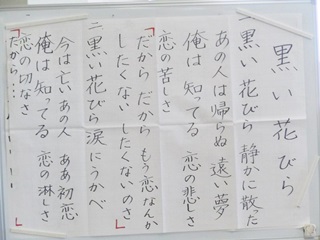 黒い花びら
一黒い花びら 静かに散った
あの人は帰らぬ 遠い夢
俺は知ってる 恋の悲しさ
恋の苦しさ
「だから だから もう恋なんか
したくない したくないのさ」
二黒い花びら 涙にうかべ
今は亡いあの人 ああ初恋
俺は知ってる 恋の淋しさ
恋の切なさ
「だから・・・・・」